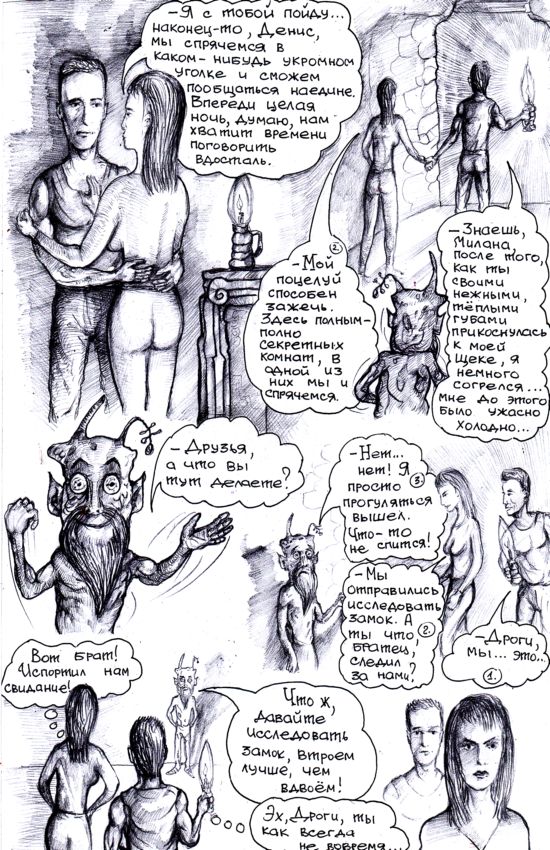 -Я с тобой пойду...
наконец-то, Денис,
мы спрячемся в
каком-нибудь укромном
уголке и сможем
пообщаться наедине.
Впереди целая
ночь, думаю, нам
хватит времени
поговорить
вдосталь.
-Знаешь,
Милана,
после того,
как ты
своими
нежными,
тёплыми
губами
прикоснулась
к моей
щеке, я
немного
согрелся...
мне до этого
было ужасно
холодно...
2
-Мой
поцелуй
способен
зажечь.
Здесь полным-
полно
секретных
комнат, в
одной из
них мы и
спрячемся.
-Друзья,
а что вы
тут делаете?
-Дроги,
мы... это...
1.
-Мы
отправились
исследовать
замок. А
ты что, 2.
братец,
следил
за нами?
-Нет...
нет! Я
просто 3
прогуляться
вышел.
Что-то
не спится!
Вот брат!
Испортил нам
свидание!
Что ж,
давайте
исследовать
замок, втроем
лучше, чем
вдвоём!
Эх, Дроги, ты
как всегда
не вовремя...